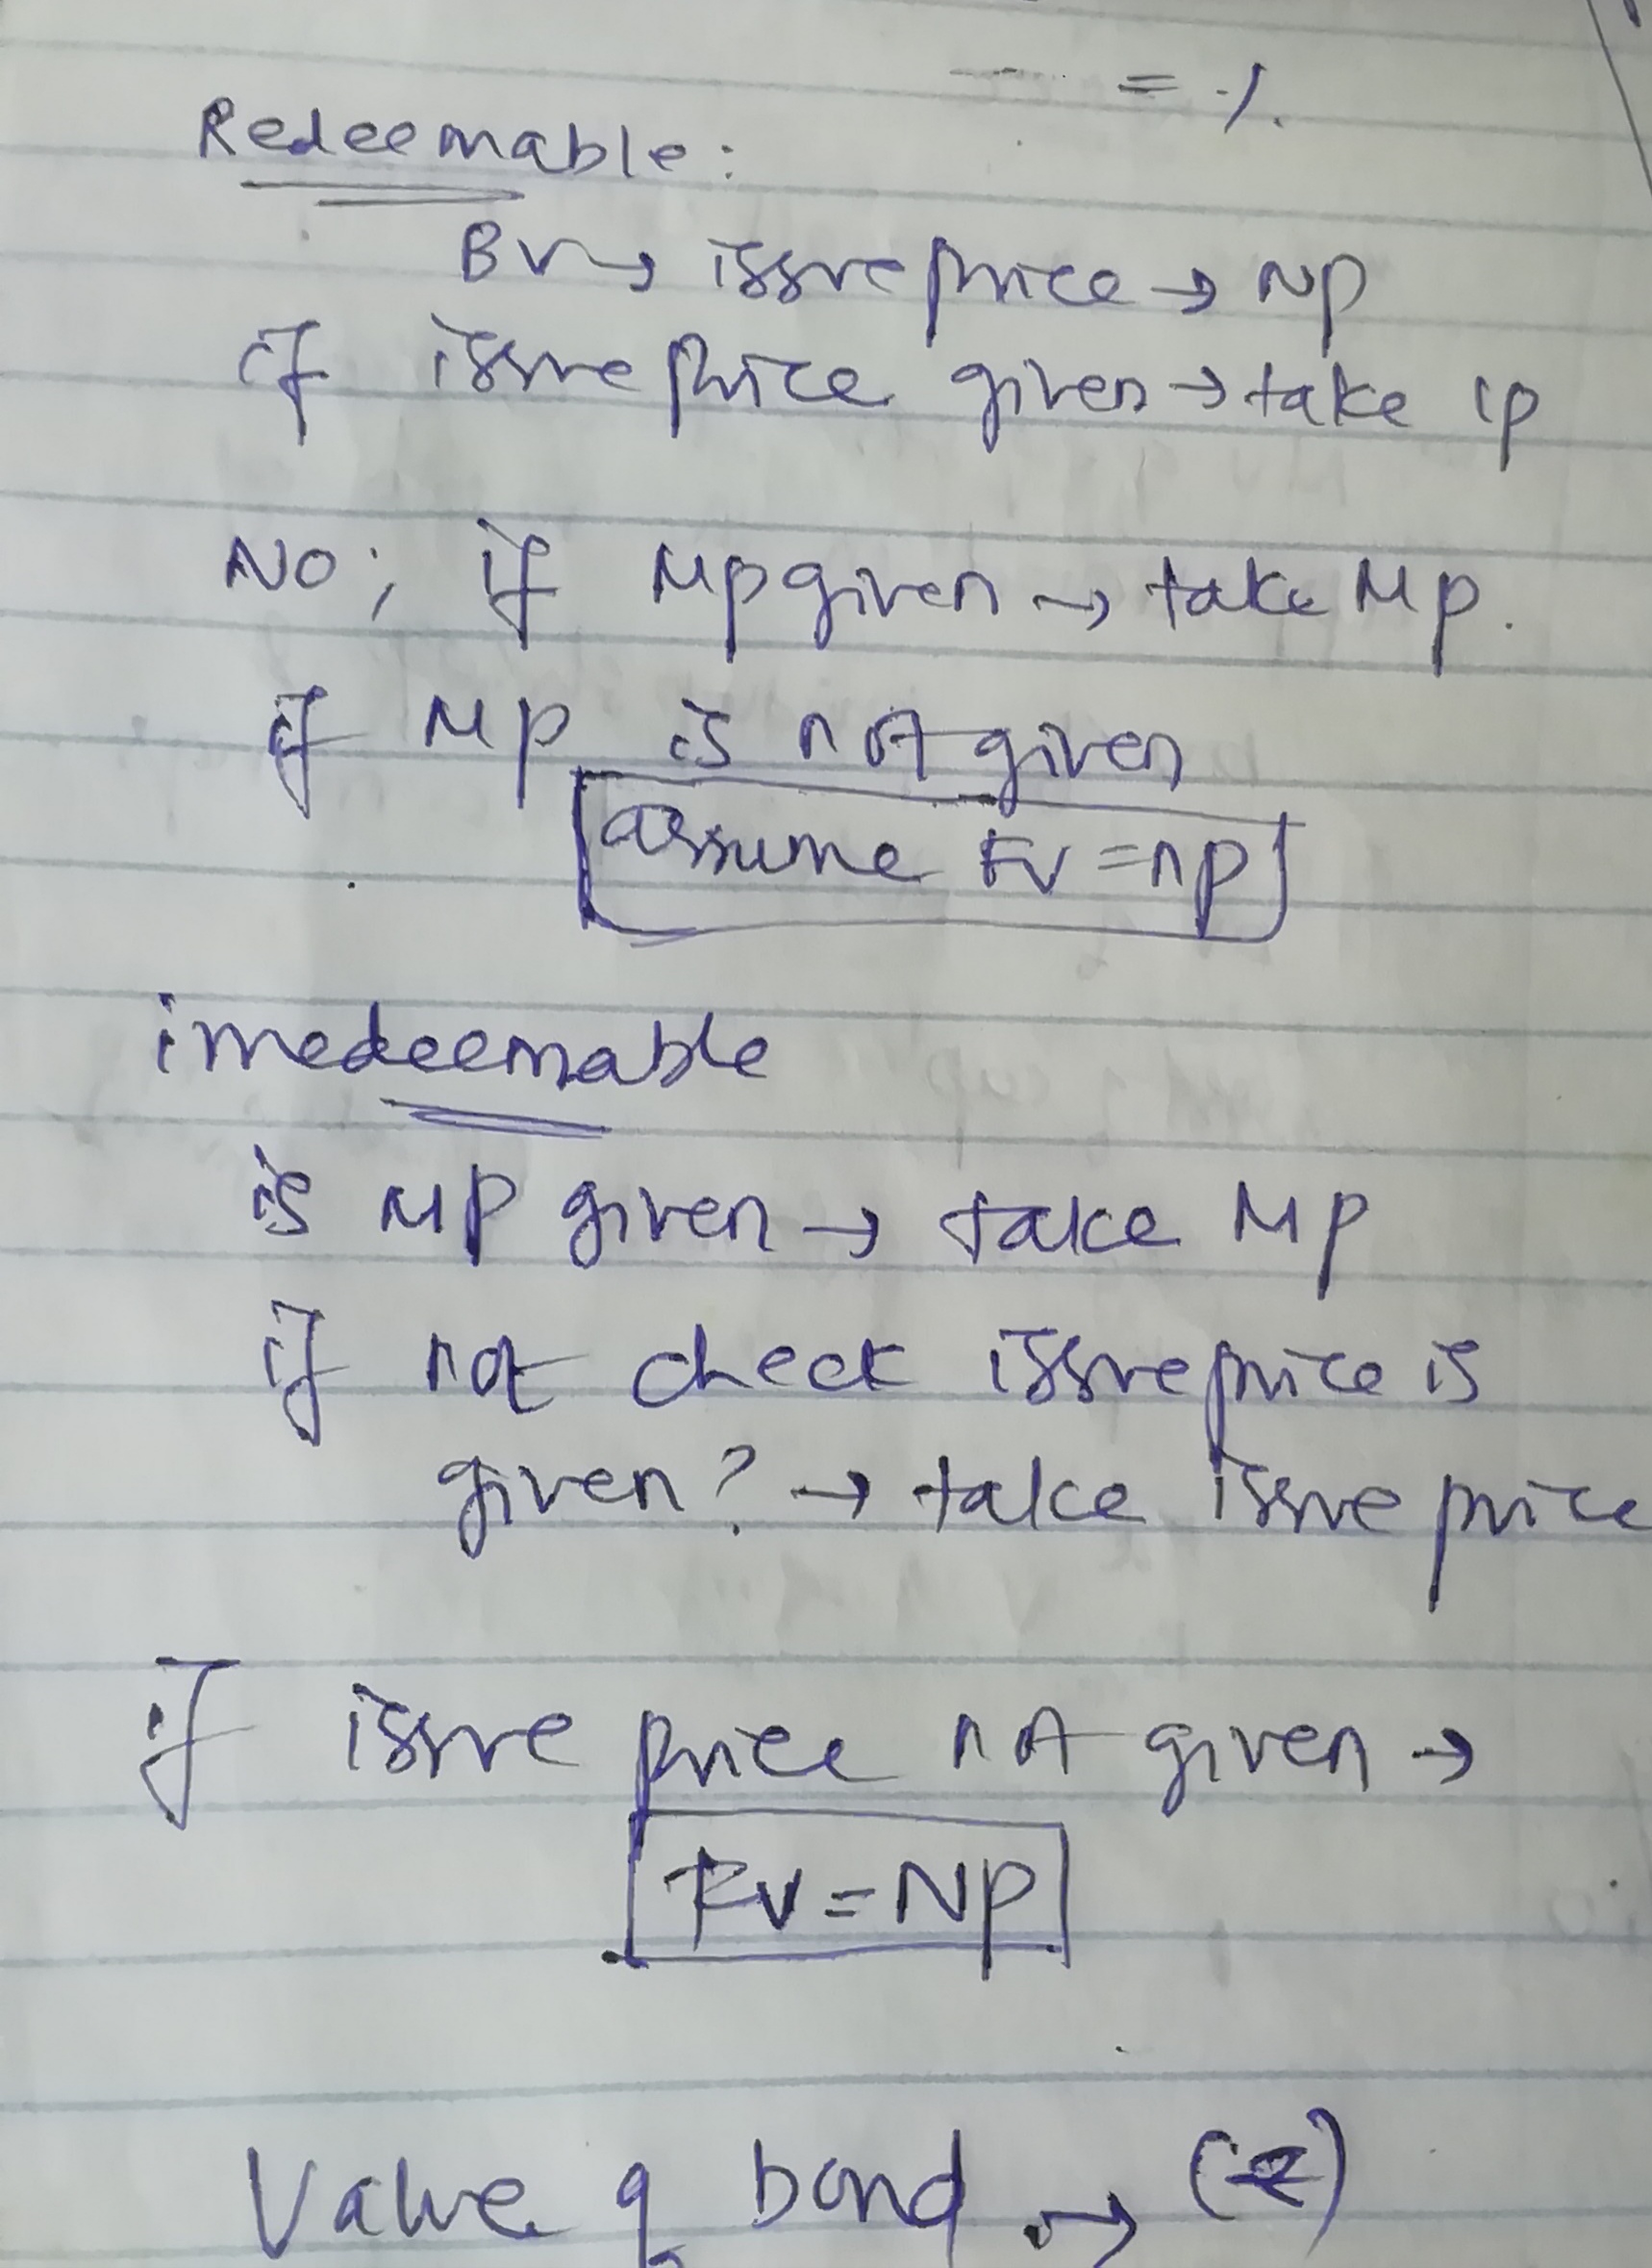 = ٪.
Redeemable:
BV → issue price → NP
if issue price given → take ip
NO; if MP given → take MP.
if MP is not given
assume FV = np
irredeemable
is MP given → take MP
if not check issue price is
given? → take issue price
if issue price not given →
FV = NP
Value of bond → (₹)